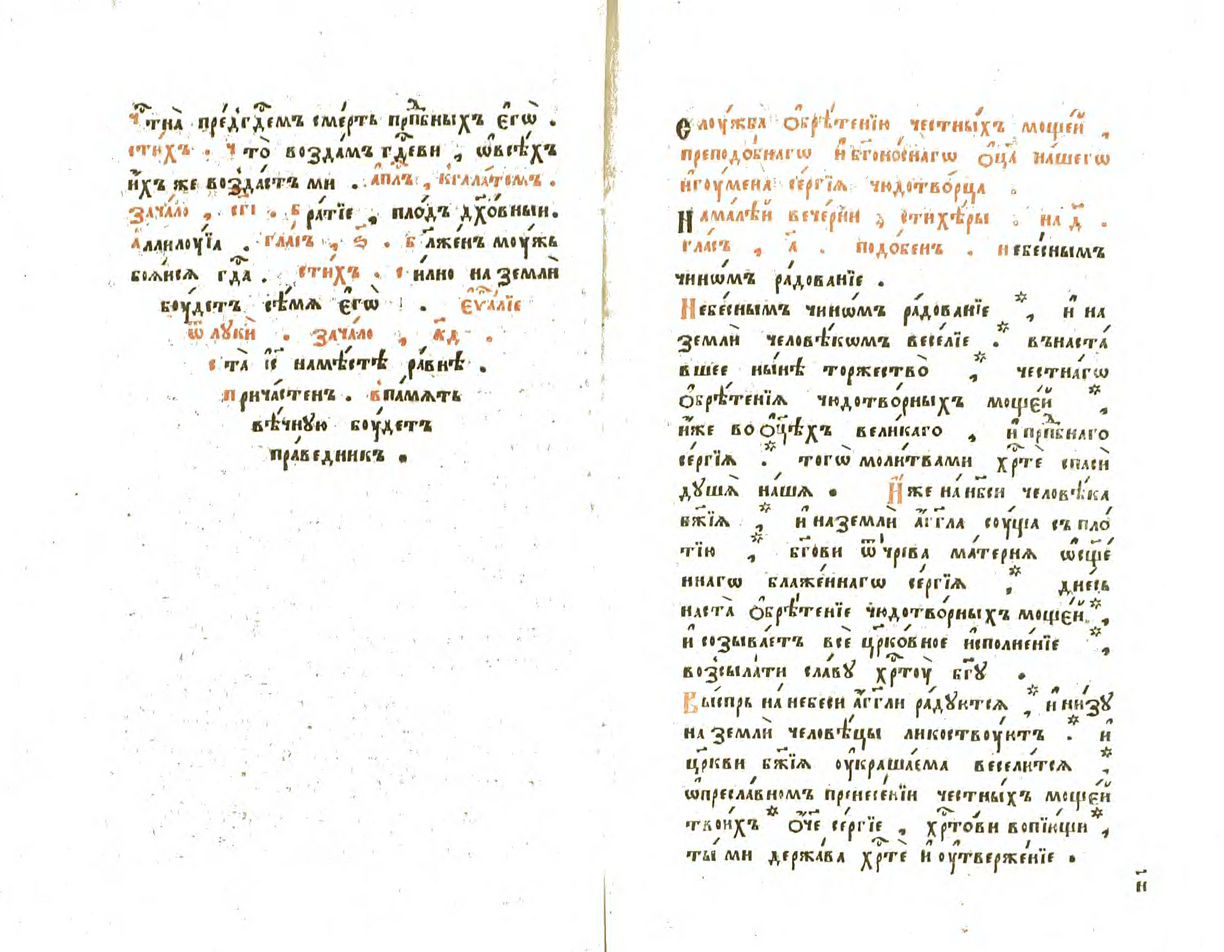 чⷭ҇тна̀ пре́дгдⷭ҇емъ сме́рть прпⷣбныхъ є҆гѡ̀ .
сти́хъ . что̀ возда́мъ гдⷭ҇еви , ѡ҆всѣ́хъ
и҆́хъ же возда́стъ ми . а҆пⷭ҇лъ , кгала́томъ .
зача́ло , сг҃і . бра́тїе , пло́дъ дх҃о́вныи .
а҆ллилоу́їа . гла́съ , ѕ҃ . бл҃же́нъ моу́жъ
боѧ́исѧ гдⷭ҇а . сти́хъ . си́лно на землѝ
боу́детъ сѣ́мѧ є҆гѡ̀ . є҆ѵⷢ҇а́лїе
ѿ лꙋкѝ . зача́ло , к҃д .
ста̀ і҆с҃ намѣ́стѣ ра́внѣ .
прича́стенъ . впа́мѧть
вѣ́чнꙋю боу́детъ
пра́ведникъ .
слоу́жба ѻ҆брѣ́тенїю честны́хъ моще́й ,
преподо́бнагѡ и҆ бг҃оно́снагѡ ѻ҆ц҃а̀ на́шегѡ
и҆гоу́мена се́ргїѧ чюдотво́рца .
на ма́лѣй вече́рни , стихѣ́ры . на д҃ .
гла́съ , а҃ . подо́бенъ . небе́снымъ
чинѡ́мъ ра́дованїе .
Небе́снымъ чинѡ́мъ ра́дованїе * , и҆ на
землѝ человѣ́кѡмъ весе́лїе .* вънаста́
вшее ны́нѣ торжество̀ ,* че́стнагѡ
ѻ҆брѣ́тенїѧ чюдотво́рныхъ моще́й ,*
и҆́же во ѻ҆ц҃ѣ́хъ вели́каго , и҆ прпⷣбнаго
се́ргїѧ .* тогѡ̀ моли́твами хрⷭ҇тѐ спасѝ
дꙋшѧ̀ на́шѧ . И҆́же на нб҃си человѣ́ка
бж҃їѧ ,* и҆ на землѝ а҆́гг҃ла соу́ща съ пло́
тїю ,* бг҃ови ѿ чре́ва ма́тернѧ ѡ҆сщ҃е́
ннагѡ блаже́ннагѡ се́ргїѧ ,* дне́сь
наста̀ ѻ҆брѣ́тенїе чюдотво́рныхъ моще́й ,*
и҆ созыва́етъ всѐ цр҃ко́вное и҆сполне́нїе ,*
возсыла́ти сла́вꙋ хрⷭ҇тоу̀ бг҃ꙋ .
Вы́спрь на небеси а҆́гг҃ли ра́дꙋютсѧ ,* и҆ ни́зꙋ
на землѝ человѣ́цы ликоствоу́ютъ .* и҆
цр҃кви бж҃їѧ оу҆краша́ема весели́тсѧ ,*
ѡ҆пресла́вномъ пренесе́нїи честны́хъ моще́й
твои́хъ * ѻ҆́ч҃е се́ргїе , хрⷭ҇то́ви вопїю́щи ,*
ты́ ми держа́ва хрⷭ҇тѐ и҆ оу҆твержде́нїе .
н҃